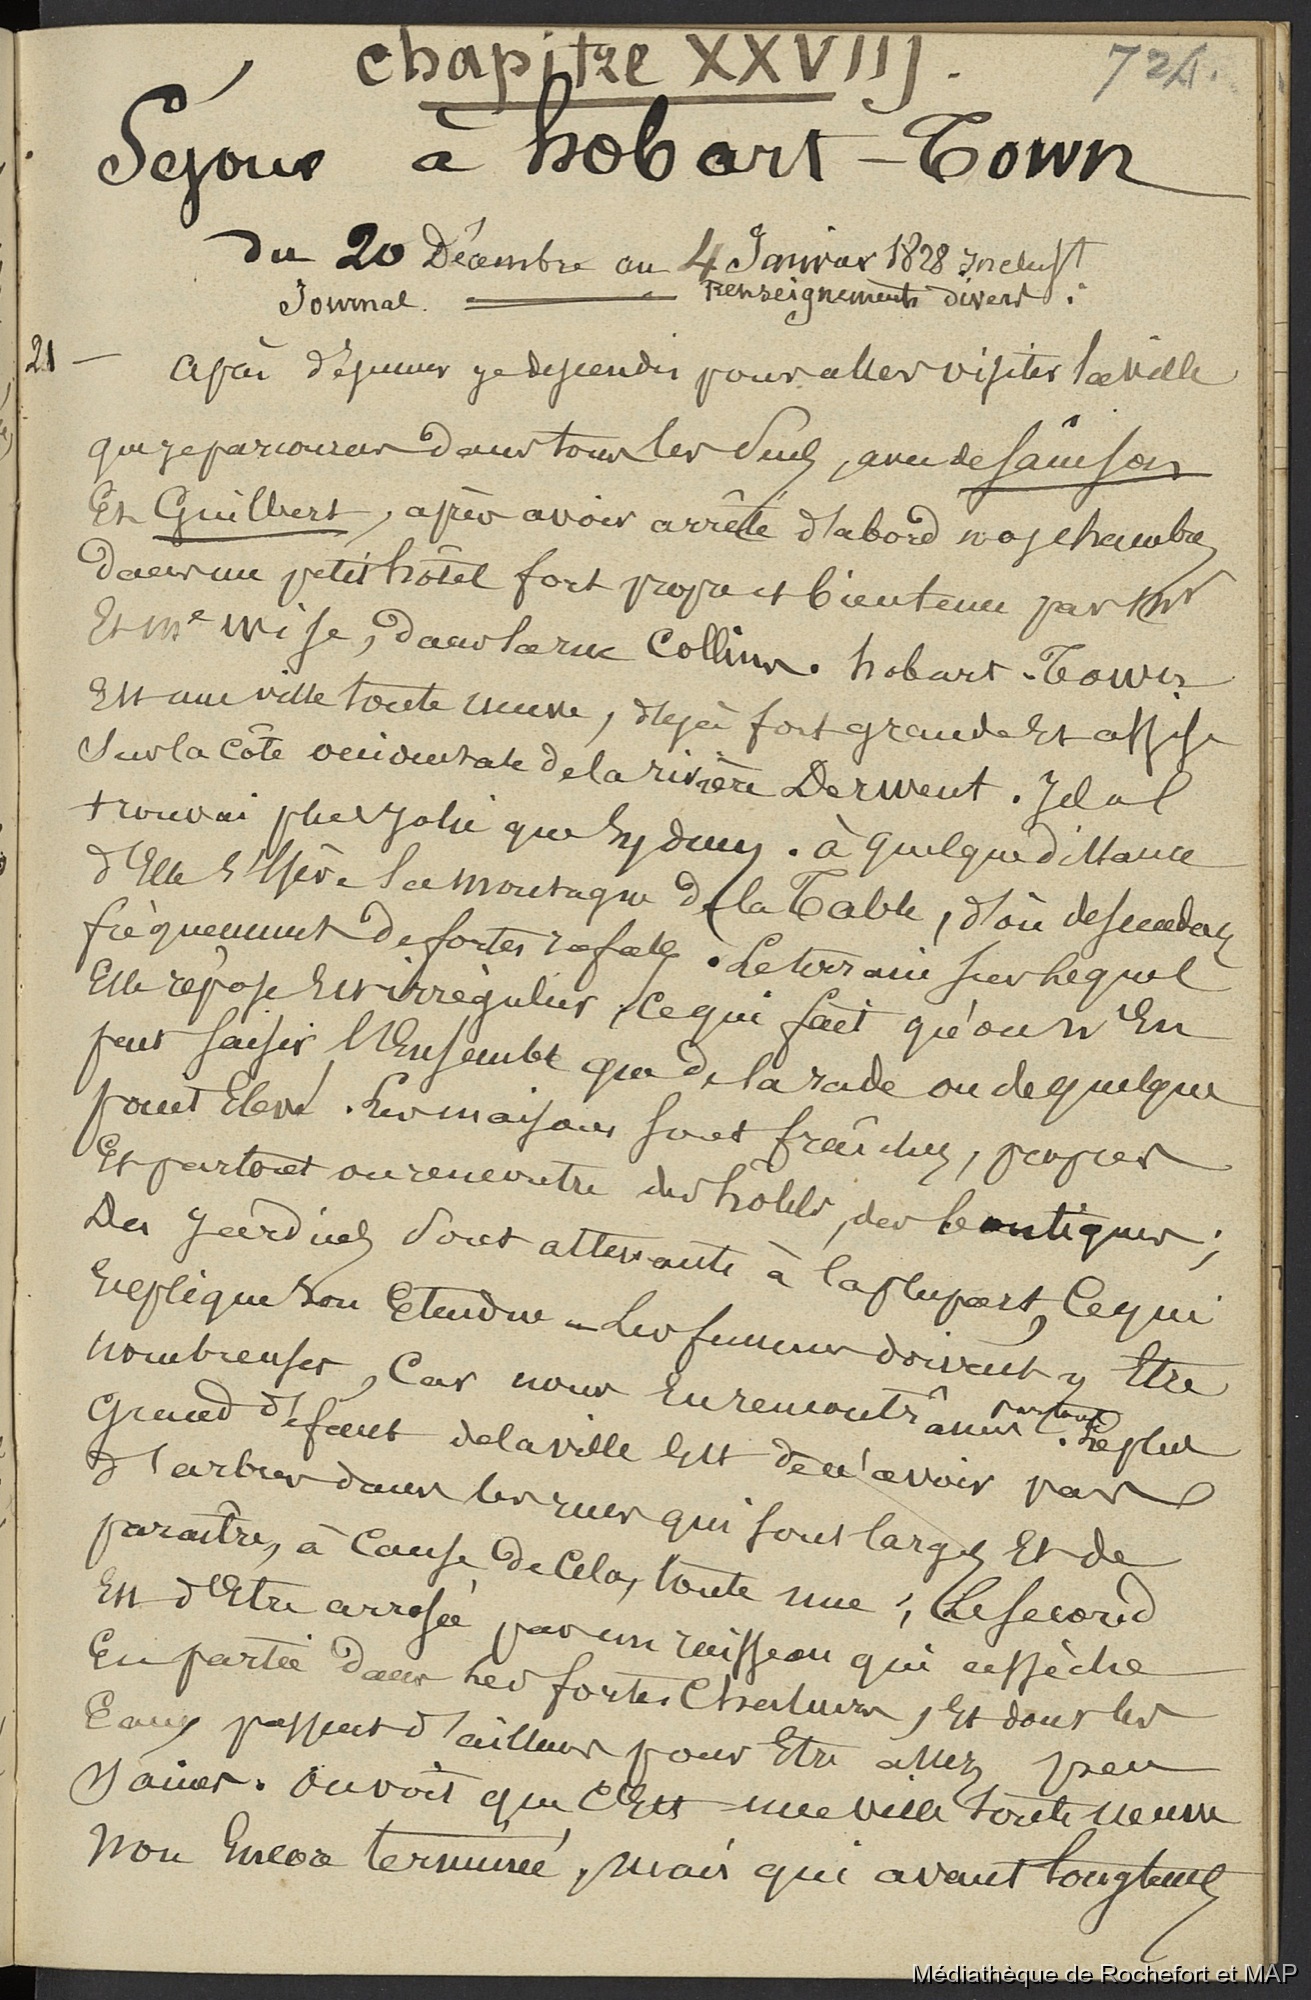 chapitre XXVIIJ.
724.
Séjour à hobart-Town
du 20 Décembre au 4 Janvier 1828 Inclus.t
Journal. ═ Renseignements divers :
21 — après déjeuner je descendis pour aller visiter la ville
que je parcourus dans tous les sens, avec de Sainson
Et Guilbert, après avoir arrêté d'abord nos chambres
dans un petit hôtel fort propre et bien tenu par Mr
Et me wise, dans la rue Collins. hobart-Town
Est une ville toute neuve, déjà fort grande Et assise
Sur la côte occidentale de la rivière Derwent. Je la
trouvai plus jolie que Sydney. à quelque distance
d'Elle s'élève la montagne de la Table, d'où descendent
fréquemment de fortes rafales. Le terrain sur lequel
Elle repose Est irrégulier, ce qui fait qu'on n'En
peut saisir l'Ensemble que de la rade ou de quelque
point Elevé. Les maisons sont fraîches, propres
Et partout on rencontre des hôtels, des boutiques ;
Des jardins sont attenants à la plupart, Ce qui
Explique son Etendue – Les fumeurs doivent y Etre
nombreuses, Car nous En rencontrâmes partout. Le plus
Grand défaut de la ville Est de n'avoir pas
d'arbres dans les rues qui sont larges Et de
paraître, à Cause de Cela, toute nue ; Le second
Est d'Etre arrosée par un ruisseau qui assèche
En partie dans les fortes Chaleurs, Et dont les
Eaux passent d'ailleurs pour Etre assez peu
Saines. On voit que C'Est une ville toute neuve
Non Encore terminée, mais qui avant longtems
Médiathèque de Rochefort et MAP